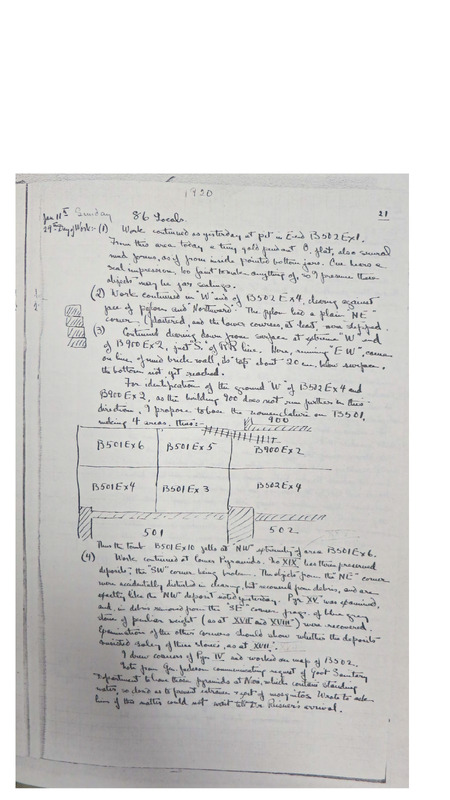 1920
21
Jan 11th Sunday 86 Locals.
29th Day of Work:- (1) Work continued as yesterday at pit in E end B502 Ex 1.
From this area today a tiny gold pendant O, flat, also several
mud forms, as if from inside pointed bottom jars. One bears a
seal impression, too faint to make anything of, so I presume these
objects may be jar sealings.
(2) Work continued in "W" end of B502 Ex 4, clearing against
face of pylon and Northward. The pylon had a plain NE
corner (plastered, and the lower courses, at least, were
(3) Continued clearing down from surface at extreme "W" end
of B900 Ex 2, just "S" of RR line. Here, running "E-W", came
on line of mud brick wall, its top about 20 cm. below surface,
the bottom not yet reached.
For identification of the ground "W" of B502 Ex 4 and
B900 Ex 2, as the building 900 does not run further in this
direction, I propose to base the nomenclature on B501,
making 4 areas, thus:-
900
B501 Ex 6 B501 Ex 5 B900 Ex 2
B501 Ex 4 B501 Ex 3 B502 Ex 4
501 502
Thus the tomb B501 Ex 10 falls at "NW" extremity of area B501 Ex 6.
(4) Work continued at lower Pyramids. No XIX has three preserved
deposits, the "SW" corner being broken. The objects from the "NE" corner
were accidentally disturbed in clearing, but recovered from debris, and are
exactly like the "NW" deposit noted yesterday. Pyr. XV was examined,
and, in debris removed from the "SE" corner frags. of blue gray
stone of peculiar weight (as at XVII and XVIII) were recovered.
Examination of the other corners should show whether the deposits
consisted solely of these stones, as at XVII.
I drew corners of Pyr. IV and worked on map of B502.
Note from Gov. Jackson communicating request of Govt Sanitary
Department to have these pyramids at Nuri, which contain standing
water, so closed as to prevent entrance & exit of mosquitos. Wrote to ask
him if this matter could not wait till Dr. Reisner's arrival.